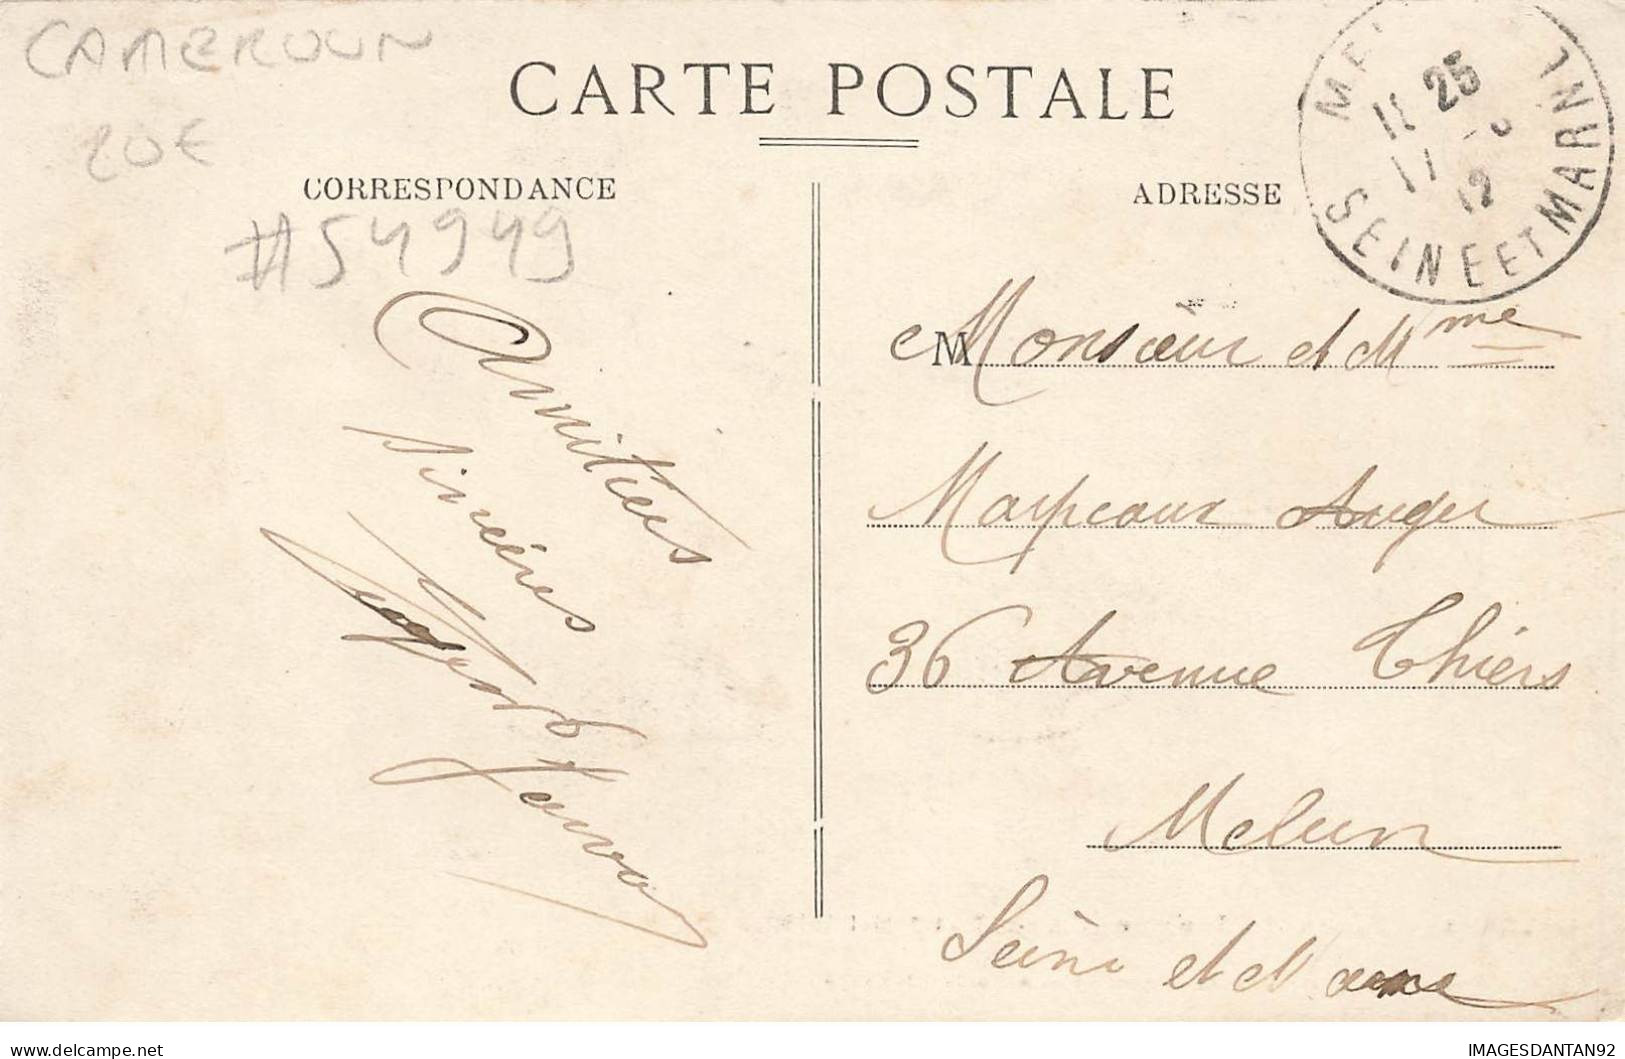 CAMEROUN
20€
CARTE POSTALE
CORRESPONDANCE
ADRESSE
#54949
11 25
12
SEINE ET MARNE
Amitiées
sincères
M Monsieur et Mme
Marpeaux Auger
36 Avenue Thiers
Melun
Seine et Marne
IMAGESDANTAN92